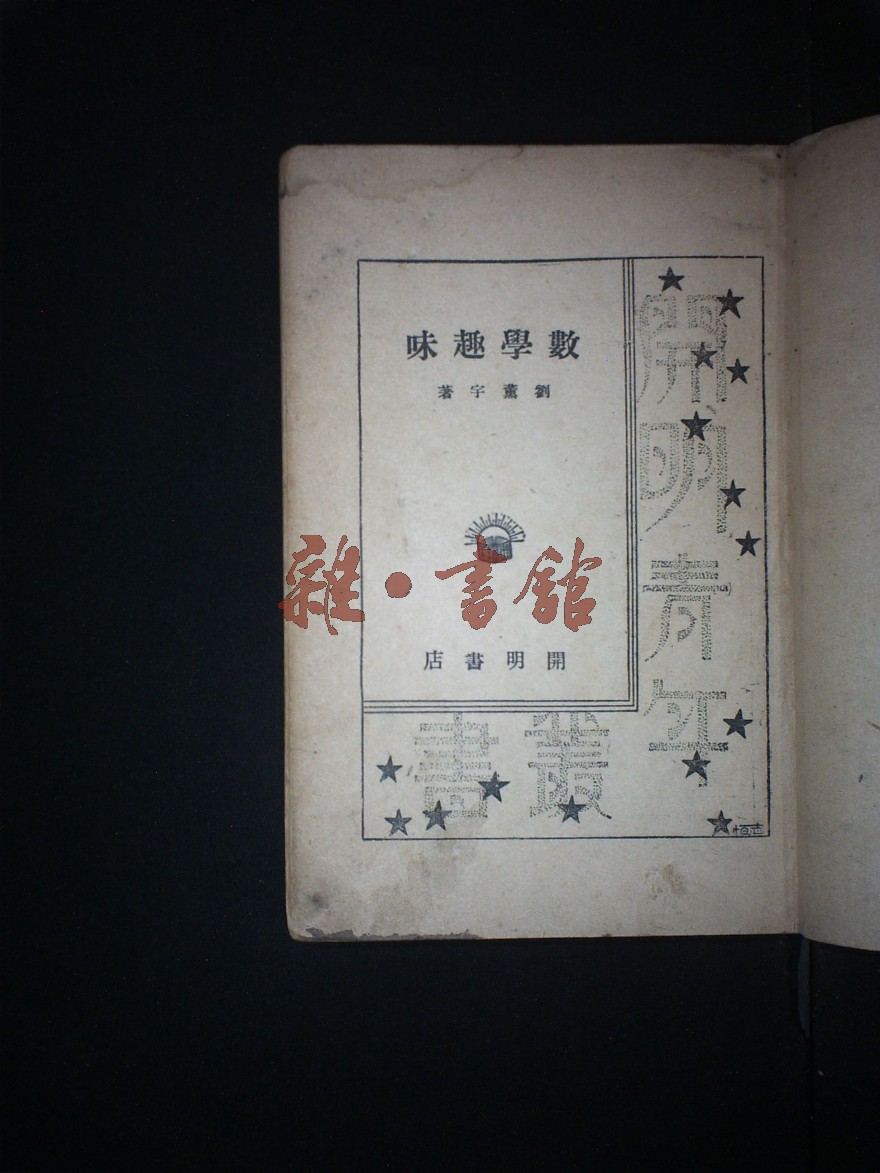 數學趣味
劉薰宇著
開明書店
開明青年
叢書
雜·書館